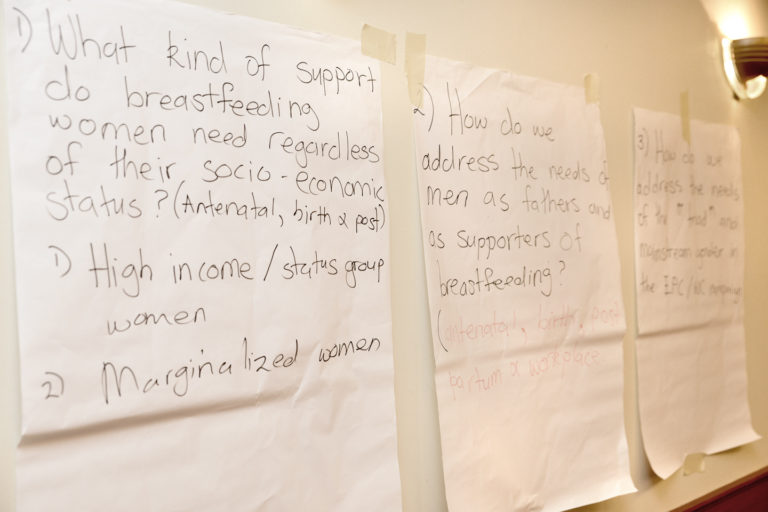 1) What kind of support
do breastfeeding
women need regardless
of their socio-economic
status? (Antenatal, birth & post)
1) High income/status group
women
2) Marginalized women
2) How do we
address the needs of
men as fathers and
as supporters of
breastfeeding?
(antenatal, birth, post
partum & workplace
3) How do we
address the needs
of the "triad" and
mainstream gender in
the